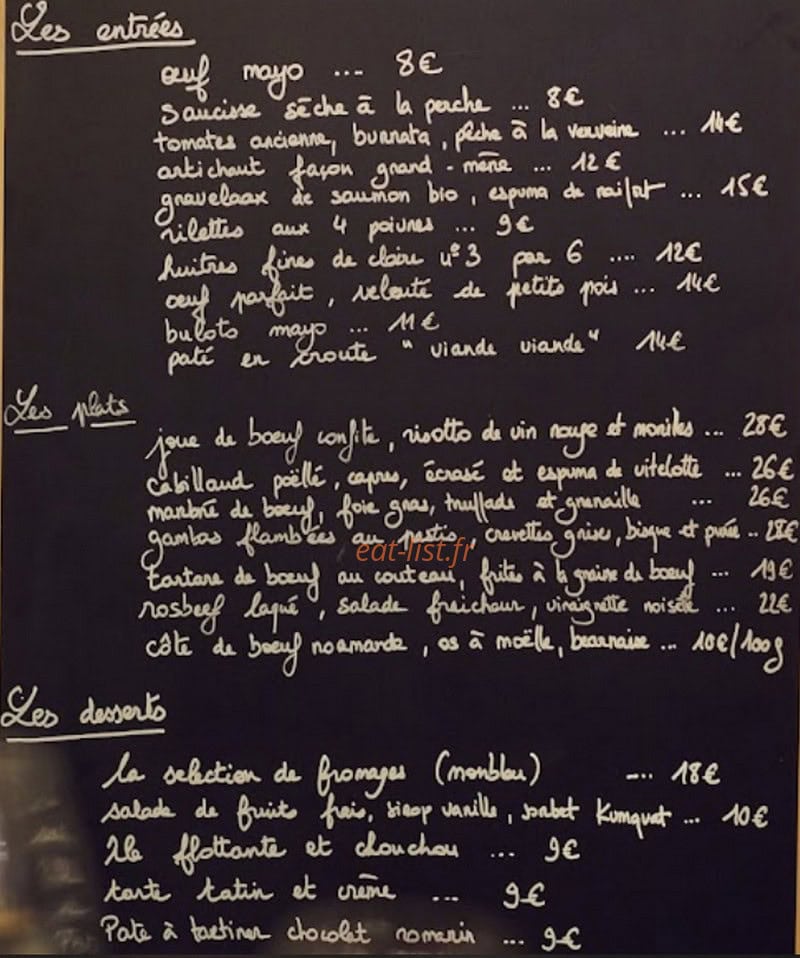 Les entrées
œuf mayo ... 8€
saucisse sêche à la perche ... 8€
tomates ancienne, burrata, pêche à la verveine ... 14€
artichaut façon grand-mère ... 12€
gravelaax de saumon bio, espuma de raifort ... 15€
rilettes aux 4 poivres ... 9€
huitres fines de claire n°3 par 6 .... 12€
œuf parfait, velouté de petits pois ... 14€
buloto mayo ... 11€
paté en croute "viande viande" 14€
Les plats
joue de boeuf confite, risotto de vin rouge et morilles ... 28€
cabillaud poëllé, capres, écrasé et espuma de vitelotte ... 26€
marbré de boeuf, foie gras, truffade et grenaille ... 26€
gambas flambées au pastis, crevettes grise, bisque et purée .. 28€
eat-list.fr
tartare de boeuf au couteau, frites à la graine de boeuf ... 19€
rosbeef laqué, salade fraicheur, vinaigrette noisette ... 22€
côte de boeuf normande, os à moëlle, bearnaise ... 10€/100g
Les desserts
la selection de fromages (monbleu) .... 18€
salade de fruits frais, sirop vanille, sorbet Kumquat ... 10€
Ile flottante et chouchou ... 9€
tarte tatin et crème ... 9€
Pate à tartiner chocolat romarin ... 9€